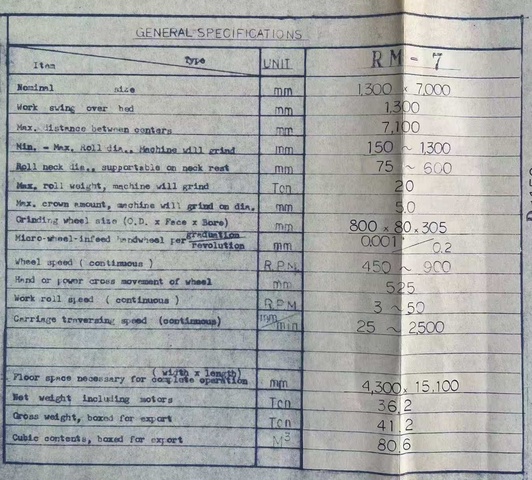 GENERAL SPECIFICATIONS
Item Type UNIT RM-7
Nominal size mm 1,300 x 7,000
Work swing over bed mm 1,300
Max. distance between centers mm 7,100
Min. - Max. Roll dia., Machine will grind mm 150 ~ 1,300
Roll neck dia., supportable on neck rest mm 75 ~ 600
Max. roll weight, machine will grind Ton 20
Max. crown amount, machine will grind on dia. mm 5.0
Grinding wheel size (O.D. x Face x Bore) mm 800 x 80 x 305
Micro-wheel-infeed handwheel per graduation/revolution mm 0.001/0.2
Wheel speed ( continuous ) R.P.M. 450 ~ 900
Hand or power cross movement of wheel mm 525
Work roll speed ( continuous ) R.P.M 3 ~ 50
Carriage traversing speed (continuous) mm/min 25 ~ 2,500
( width x length)
Floor space necessary for complete operation mm 4,300 x 15,100
Net weight including motors Ton 36.2
Gross weight, boxed for export Ton 41.2
Cubic contents, boxed for export M³ 80.6